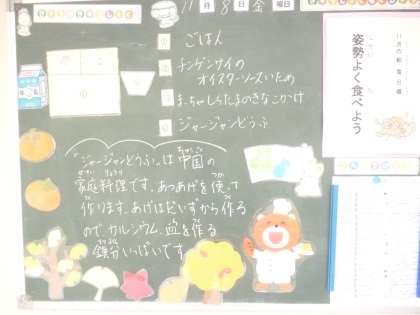 11月8日金曜日
ごはん
チンゲンサイの
オイスターソースいため
まっちゃしらたまのきなこかけ
ジャージャンどうふ
"ジャージャンどうふ"は中国の
家庭料理です。あつあげを使って
作ります。あげはだいずから作る
ので、カルシウム、血を作る
鉄分いっぱいです
姿勢よく食べよう